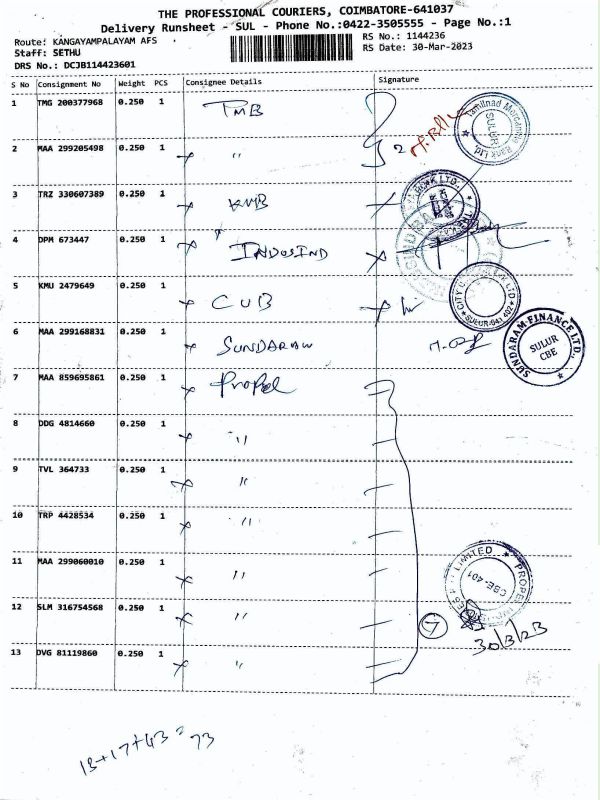 THE PROFESSIONAL COURIERS, COIMBATORE-641037
Delivery Runsheet - SUL - Phone No.:0422-3505555 - Page No.:1
Route: KANGAYAMPALAYAM AFS
Staff: SETHU
DRS No.: DCJB114423601
RS No.: 1144236
RS Date: 30-Mar-2023
S No Consignment No Weight PCS Consignee Details Signature
1 TMG 200377968 0.250 1 TMB
2 MAA 299205498 0.250 1 " 2
3 TRZ 330607389 0.250 1 KMB
4 DPM 673447 0.250 1 INDUSIND
5 KMU 2479649 0.250 1 CUB
6 MAA 299168831 0.250 1 SUNDARAM
7 MAA 859695861 0.250 1 Propel
8 DDG 4814660 0.250 1 "
9 TVL 364733 0.250 1 "
10 TRP 4428534 0.250 1 "
11 MAA 299060010 0.250 1 "
12 SLM 316754568 0.250 1 "
13 DVG 81119860 0.250 1 "
Tamilnad Mercantile Bank Ltd.
SULUR
SULUR-641 402
SUNDARAM FINANCE LTD.
SULUR
CBE
LIMITED PROPEL
CBE-401
7
30/3/23
13+17+43=73